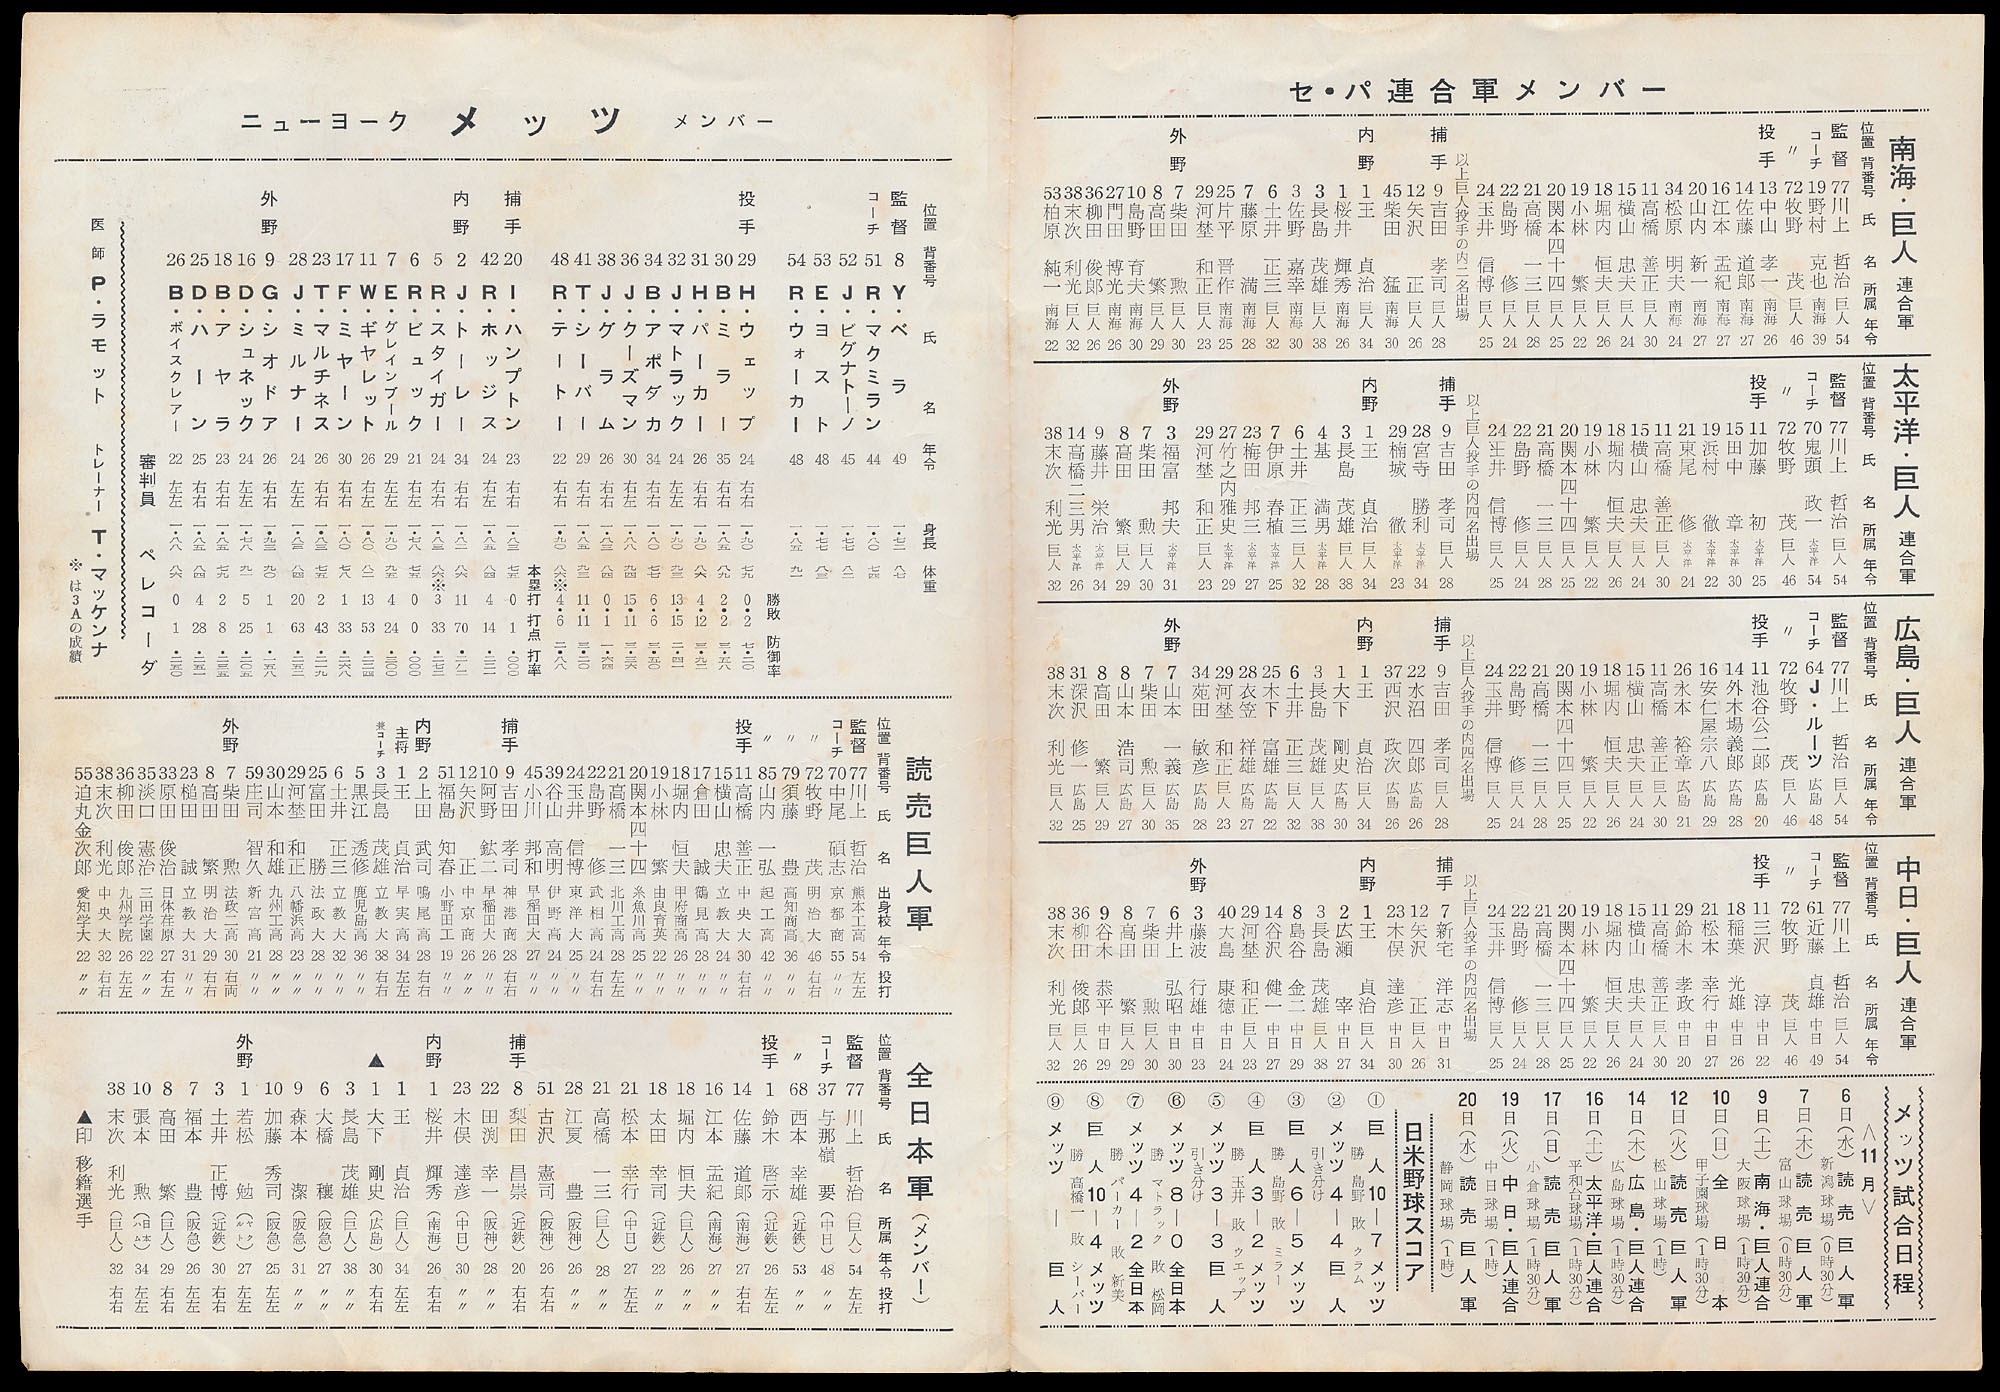 セ・パ連合軍メンバー
南海・巨人 連合軍
位置 背番号 氏名 所属 年令
監督 77 川上 哲治 巨人 54
コーチ 19 野村 克也 南海 39
〃 72 牧野 茂 巨人 46
投手 13 中山 孝一 南海 26
14 佐藤 道郎 南海 27
16 江本 孟紀 南海 27
20 山内 新一 南海 27
34 松原 明夫 南海 24
11 高橋 善正 巨人 30
15 横山 忠夫 巨人 24
18 堀内 恒夫 巨人 26
19 小林 繁 巨人 22
20 関本 四十四 巨人 25
21 高橋 一三 巨人 28
22 島野 修 巨人 24
24 玉井 信博 巨人 25
以上巨人投手の内二名出場
捕手 9 吉田 孝司 巨人 28
12 矢沢 正 巨人 26
45 柴田 猛 南海 30
内野 1 王 貞治 巨人 34
1 桜井 輝秀 南海 26
3 長島 茂雄 巨人 38
3 佐野 嘉幸 南海 30
6 土井 正三 巨人 32
7 藤原 満 南海 28
25 片平 晋作 南海 25
29 河埜 和正 巨人 23
外野 7 柴田 勲 巨人 30
8 高田 繁 巨人 29
10 島野 育夫 南海 30
27 門田 博光 南海 26
36 柳田 俊郎 巨人 26
38 末次 利光 巨人 32
53 柏原 純一 南海 22
太平洋・巨人 連合軍
位置 背番号 氏名 所属 年令
監督 77 川上 哲治 巨人 54
コーチ 70 鬼頭 政一 太平洋 54
〃 72 牧野 茂 巨人 46
投手 11 加藤 初 太平洋 25
15 田中 章 太平洋 30
19 浜村 徹 太平洋 22
21 東尾 修 太平洋 24
11 高橋 善正 巨人 30
15 横山 忠夫 巨人 24
18 堀内 恒夫 巨人 26
19 小林 繁 巨人 22
20 関本 四十四 巨人 25
21 高橋 一三 巨人 28
22 島野 修 巨人 24
24 玉井 信博 巨人 25
以上巨人投手の内四名出場
捕手 9 吉田 孝司 巨人 28
28 宮寺 勝利 太平洋 34
29 楠城 徹 太平洋 23
内野 1 王 貞治 巨人 34
3 長島 茂雄 巨人 38
4 基 満男 太平洋 28
6 土井 正三 巨人 32
7 伊原 春植 太平洋 25
23 梅田 邦三 太平洋 27
27 竹之内 雅史 太平洋 29
29 河埜 和正 巨人 23
外野 3 福富 邦夫 太平洋 31
7 柴田 勲 巨人 30
8 高田 繁 巨人 29
9 藤井 栄治 太平洋 34
14 高橋 二三男 太平洋 26
38 末次 利光 巨人 32
広島・巨人 連合軍
位置 背番号 氏名 所属 年令
監督 77 川上 哲治 巨人 54
コーチ 64 J・ルーツ 広島 48
〃 72 牧野 茂 巨人 46
投手 11 池谷 公二郎 広島 20
14 外木場 義郎 広島 28
16 安仁屋 宗八 広島 29
26 永本 裕章 広島 21
11 高橋 善正 巨人 30
15 横山 忠夫 巨人 24
18 堀内 恒夫 巨人 26
19 小林 繁 巨人 22
20 関本 四十四 巨人 25
21 高橋 一三 巨人 28
22 島野 修 巨人 24
24 玉井 信博 巨人 25
以上巨人投手の内四名出場
捕手 9 吉田 孝司 巨人 28
22 水沼 四郎 広島 26
37 西沢 政次 広島 26
内野 1 王 貞治 巨人 34
1 大下 剛史 広島 30
3 長島 茂雄 巨人 38
6 土井 正三 巨人 32
25 木下 富雄 広島 22
28 衣笠 祥雄 広島 27
29 河埜 和正 巨人 23
34 苑田 敏彦 広島 28
外野 7 山本 一義 広島 35
7 柴田 勲 巨人 30
8 山本 浩司 広島 27
8 高田 繁 巨人 29
31 深沢 修一 広島 25
38 末次 利光 巨人 32
中日・巨人 連合軍
位置 背番号 氏名 所属 年令
監督 77 川上 哲治 巨人 54
コーチ 61 近藤 貞雄 中日 49
〃 72 牧野 茂 巨人 46
投手 11 三沢 淳 中日 22
18 稲葉 光雄 中日 26
21 松本 幸行 中日 27
29 鈴木 孝政 中日 20
11 高橋 善正 巨人 30
15 横山 忠夫 巨人 24
18 堀内 恒夫 巨人 26
19 小林 繁 巨人 22
20 関本 四十四 巨人 25
21 高橋 一三 巨人 28
22 島野 修 巨人 24
24 玉井 信博 巨人 25
以上巨人投手の内四名出場
捕手 7 新宅 洋志 中日 31
12 矢沢 正 巨人 26
23 木俣 達彦 中日 30
内野 1 王 貞治 巨人 34
2 広瀬 宰 中日 27
3 長島 茂雄 巨人 38
8 島谷 金二 中日 29
14 谷沢 健一 中日 27
29 河埜 和正 巨人 23
40 大島 康徳 中日 24
外野 3 藤波 行雄 中日 23
6 井上 弘昭 中日 30
7 柴田 勲 巨人 30
8 高田 繁 巨人 29
9 谷木 恭平 中日 29
36 柳田 俊郎 巨人 26
38 末次 利光 巨人 32
メッツ試合日程
＜11月＞
6日（水）読売巨人軍
新潟球場（0時30分）
7日（木）読売巨人軍
富山球場（0時30分）
9日（土）南海・巨人連合
大阪球場（1時30分）
10日（日）全日本
甲子園球場（1時30分）
12日（火）読売巨人軍
松山球場（1時）
14日（木）広島・巨人連合
広島球場（1時30分）
16日（土）太平洋・巨人連合
平和台球場（1時30分）
17日（日）読売巨人軍
小倉球場（1時30分）
19日（火）中日・巨人連合
中日球場（1時）
20日（水）読売巨人軍
静岡球場（1時）
日米野球スコア
① 巨人 10―7 メッツ
勝 島野 敗 クラム
② メッツ 4―4 巨人
引き分け
③ 巨人 6―5 メッツ
勝 島野 敗 ミラー
④ 巨人 3―2 メッツ
勝 玉井 敗 ウエップ
⑤ メッツ 3―3 巨人
引き分け
⑥ メッツ 8―0 全日本
勝 マトラック 敗 松岡
⑦ メッツ 4―2 全日本
勝 パーカー 敗 新美
⑧ 巨人 10―4 メッツ
勝 高橋一 敗 シーバー
⑨ メッツ ― 巨人
ニューヨーク メッツ メンバー
位置 背番号 氏名 年令 身長 体重
監督 8 Y・ベラ 49 一・七二 八七
コーチ 51 R・マクミラン 44 一・八〇 七四
52 J・ピグナトーノ 45 一・七七 八二
53 E・ヨスト 48 一・七七 八三
54 R・ウォーカー 48 一・八五 九一
勝敗 防御率
投手 29 H・ウェップ 24 右右 一・九〇 七九 0・2 七・二〇
30 B・ミラー 35 右右 一・八五 八六 2・2 三・五八
31 H・パーカー 26 右右 一・九〇 八六 4・12 三・九二
32 J・マトラック 24 左左 一・九〇 九三 13・15 二・四一
34 B・アポダカ 24 右右 一・八〇 七七 6・6 三・五〇
36 J・クーズマン 30 左右 一・八八 九三 15・11 三・三六
38 J・グラム 26 右右 一・八八 八四 0・1 一・六四
41 T・シーバー 29 右右 一・八三 九三 11・11 三・二〇
48 R・テートー 22 右右 一・九〇 八六 ※4・6 二・八八
本塁打 打点 打率
捕手 20 I・ハンプトン 23 右右 一・八三 八四 0 1 ・〇〇〇
42 R・ホッジス 24 右右 一・八五 八四 4 14 ・二二一
内野 2 J・トーレー 34 右右 一・八二 八四 11 70 ・二八二
5 R・スタイガー 24 右右 一・八〇 八六 ※3 33 ・二七三
6 R・ビュック 21 右左 一・八五 七九 0 0 ・〇〇〇
7 E・グレインプール 29 左左 一・九〇 九三 4 24 ・三〇〇
11 W・ギャレット 26 右左 一・八〇 八二 13 53 ・二二四
17 F・ミヤーン 30 右右 一・八〇 七八 1 33 ・二六八
23 T・マルチネス 26 右右 一・八三 七五 2 43 ・二一九
28 J・ミルナー 24 左左 一・八三 八四 20 63 ・二五二
外野 9 G・シオドア 26 右右 一・九三 九〇 1 1 ・一五八
16 D・シュネック 24 左左 一・七八 七九 5 25 ・二〇五
18 B・アヤラ 23 右右 一・八五 八六 2 8 ・二三五
25 D・ハーン 25 右右 一・八五 八四 4 28 ・二五一
26 B・ボイスクレアー 22 左左 一・八八 八六 0 1 ・二五〇
審判員 ペレコーダ
医師 P・ラモット トレーナー T・マッケンナ
※は3Aの成績
読売巨人軍
位置 背番号 氏名 出身校 年令 投打
監督 77 川上 哲治 熊本工高 54 左左
コーチ 70 中尾 碩志 京都商 55 左左
〃 72 牧野 茂 明治大 46 右右
〃 79 須藤 豊 高知商高 36 〃
〃 85 山内 一弘 起工高 42 〃
投手 11 高橋 善正 中央大 30 右右
15 横山 忠夫 立教大 24 〃
17 倉田 誠 鶴見高 28 〃
18 堀内 恒夫 甲府商高 26 〃
19 小林 繁 由良育英 22 〃
20 関本 四十四 糸魚川高 25 〃
21 高橋 一三 北川工高 28 左左
22 島野 修 武相高 24 右右
24 玉井 信博 東洋大 25 〃
39 小谷 高明 伊野高 24 〃
45 小川 邦和 早稲田大 27 〃
捕手 9 吉田 孝司 神港商 28 右右
10 阿野 鉱二 早稲田大 28 〃
12 矢沢 正 中京商 26 〃
51 福島 知春 小野田工 19 〃
内野 2 上田 武司 鳴尾高 28 右右
主将 1 王 貞治 早実高 34 左左
兼コーチ 3 長島 茂雄 立教大 38 右右
5 黒江 透修 鹿児島高 36 〃
6 土井 正三 立教大 32 〃
25 富田 勝 法政大 28 〃
29 河埜 和正 八幡浜高 23 〃
30 山本 和雄 九州工高 28 〃
59 庄司 智久 新宮高 21 〃
外野 7 柴田 勲 法政二高 30 右両
8 高田 繁 明治大 29 右右
23 槌田 誠 立教大 31 〃
33 原田 俊治 日体荏原 27 右左
35 淡口 憲治 三田学園 22 〃
36 柳田 俊郎 九州学院 26 左左
38 末次 利光 中央大 32 右右
55 迫丸 金次郎 愛知学大 22 〃
全日本軍（メンバー）
位置 背番号 氏名 所属 年令 投打
監督 77 川上 哲治（巨人）54 左左
コーチ 37 与那嶺 要（中日）48 左左
〃 68 西本 幸雄（近鉄）53 左左
投手 1 鈴木 啓示（近鉄）26 左左
14 佐藤 道郎（南海）27 右右
16 江本 孟紀（南海）27 〃
18 堀内 恒夫（巨人）26 〃
18 太田 幸司（近鉄）22 〃
21 松本 幸行（中日）27 左左
21 高橋 一三（巨人）28 〃
28 江夏 豊（阪神）26 〃
51 古沢 憲司（阪神）26 右右
捕手 8 梨田 昌崇（近鉄）20 右右
22 田渕 幸一（阪神）28 〃
23 木俣 達彦（中日）30 〃
内野 1 桜井 輝秀（南海）26 右右
1 王 貞治（巨人）34 左左
▲ 1 大下 剛史（広島）30 右右
3 長島 茂雄（巨人）38 〃
6 大橋 穣（阪急）27 〃
9 森本 潔（阪急）31 〃
10 加藤 秀司（阪急）25 左左
外野 1 若松 勉（ヤクルト）27 右左
3 土井 正博（近鉄）30 右右
7 福本 豊（阪急）26 左左
8 高田 繁（巨人）29 右右
10 張本 勲（日本ハム）34 左左
38 末次 利光（巨人）32 右右
▲印 移籍選手